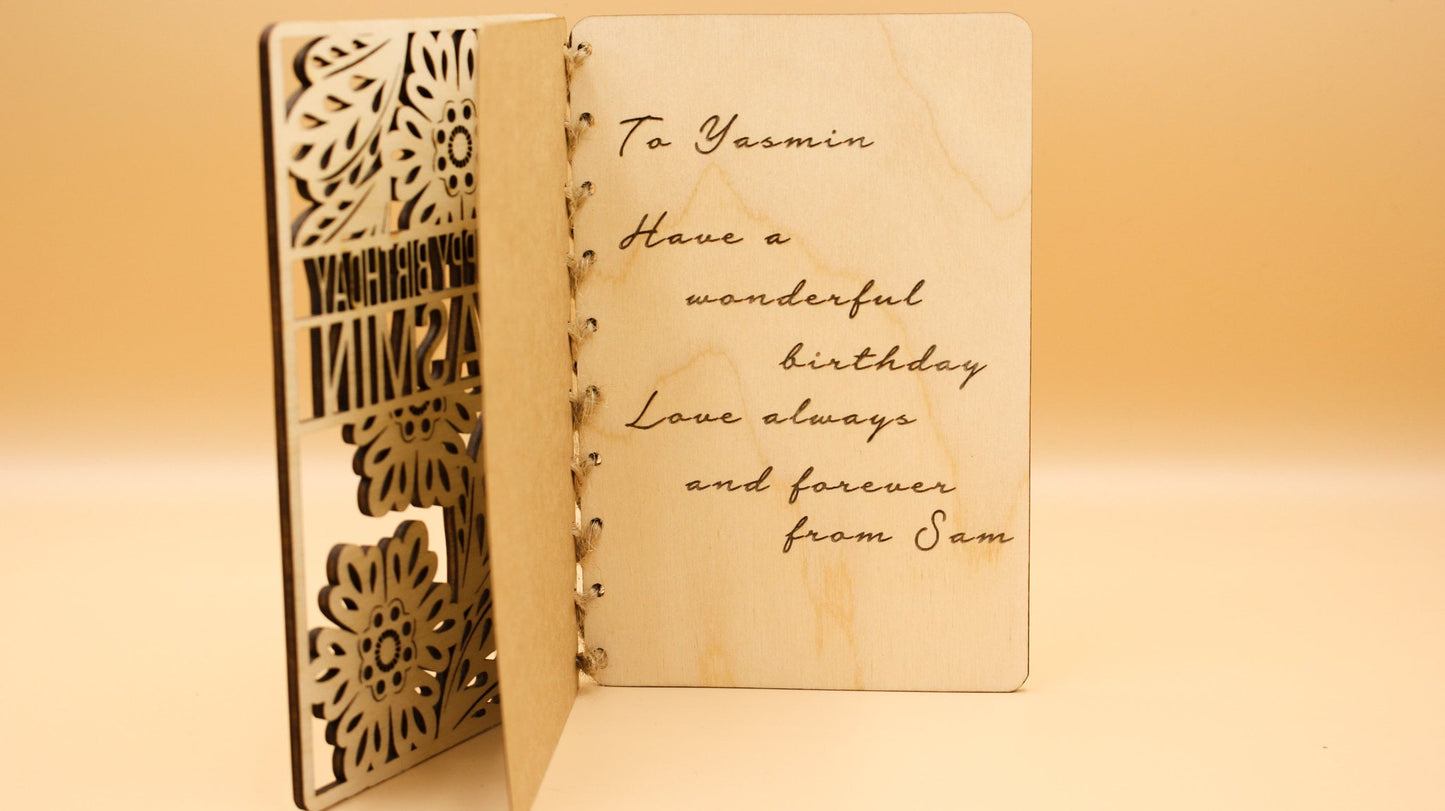 PPY BIRTHDAY
ASMIN
To Yasmin
Have a
wonderful
birthday
Love always
and forever
from Sam